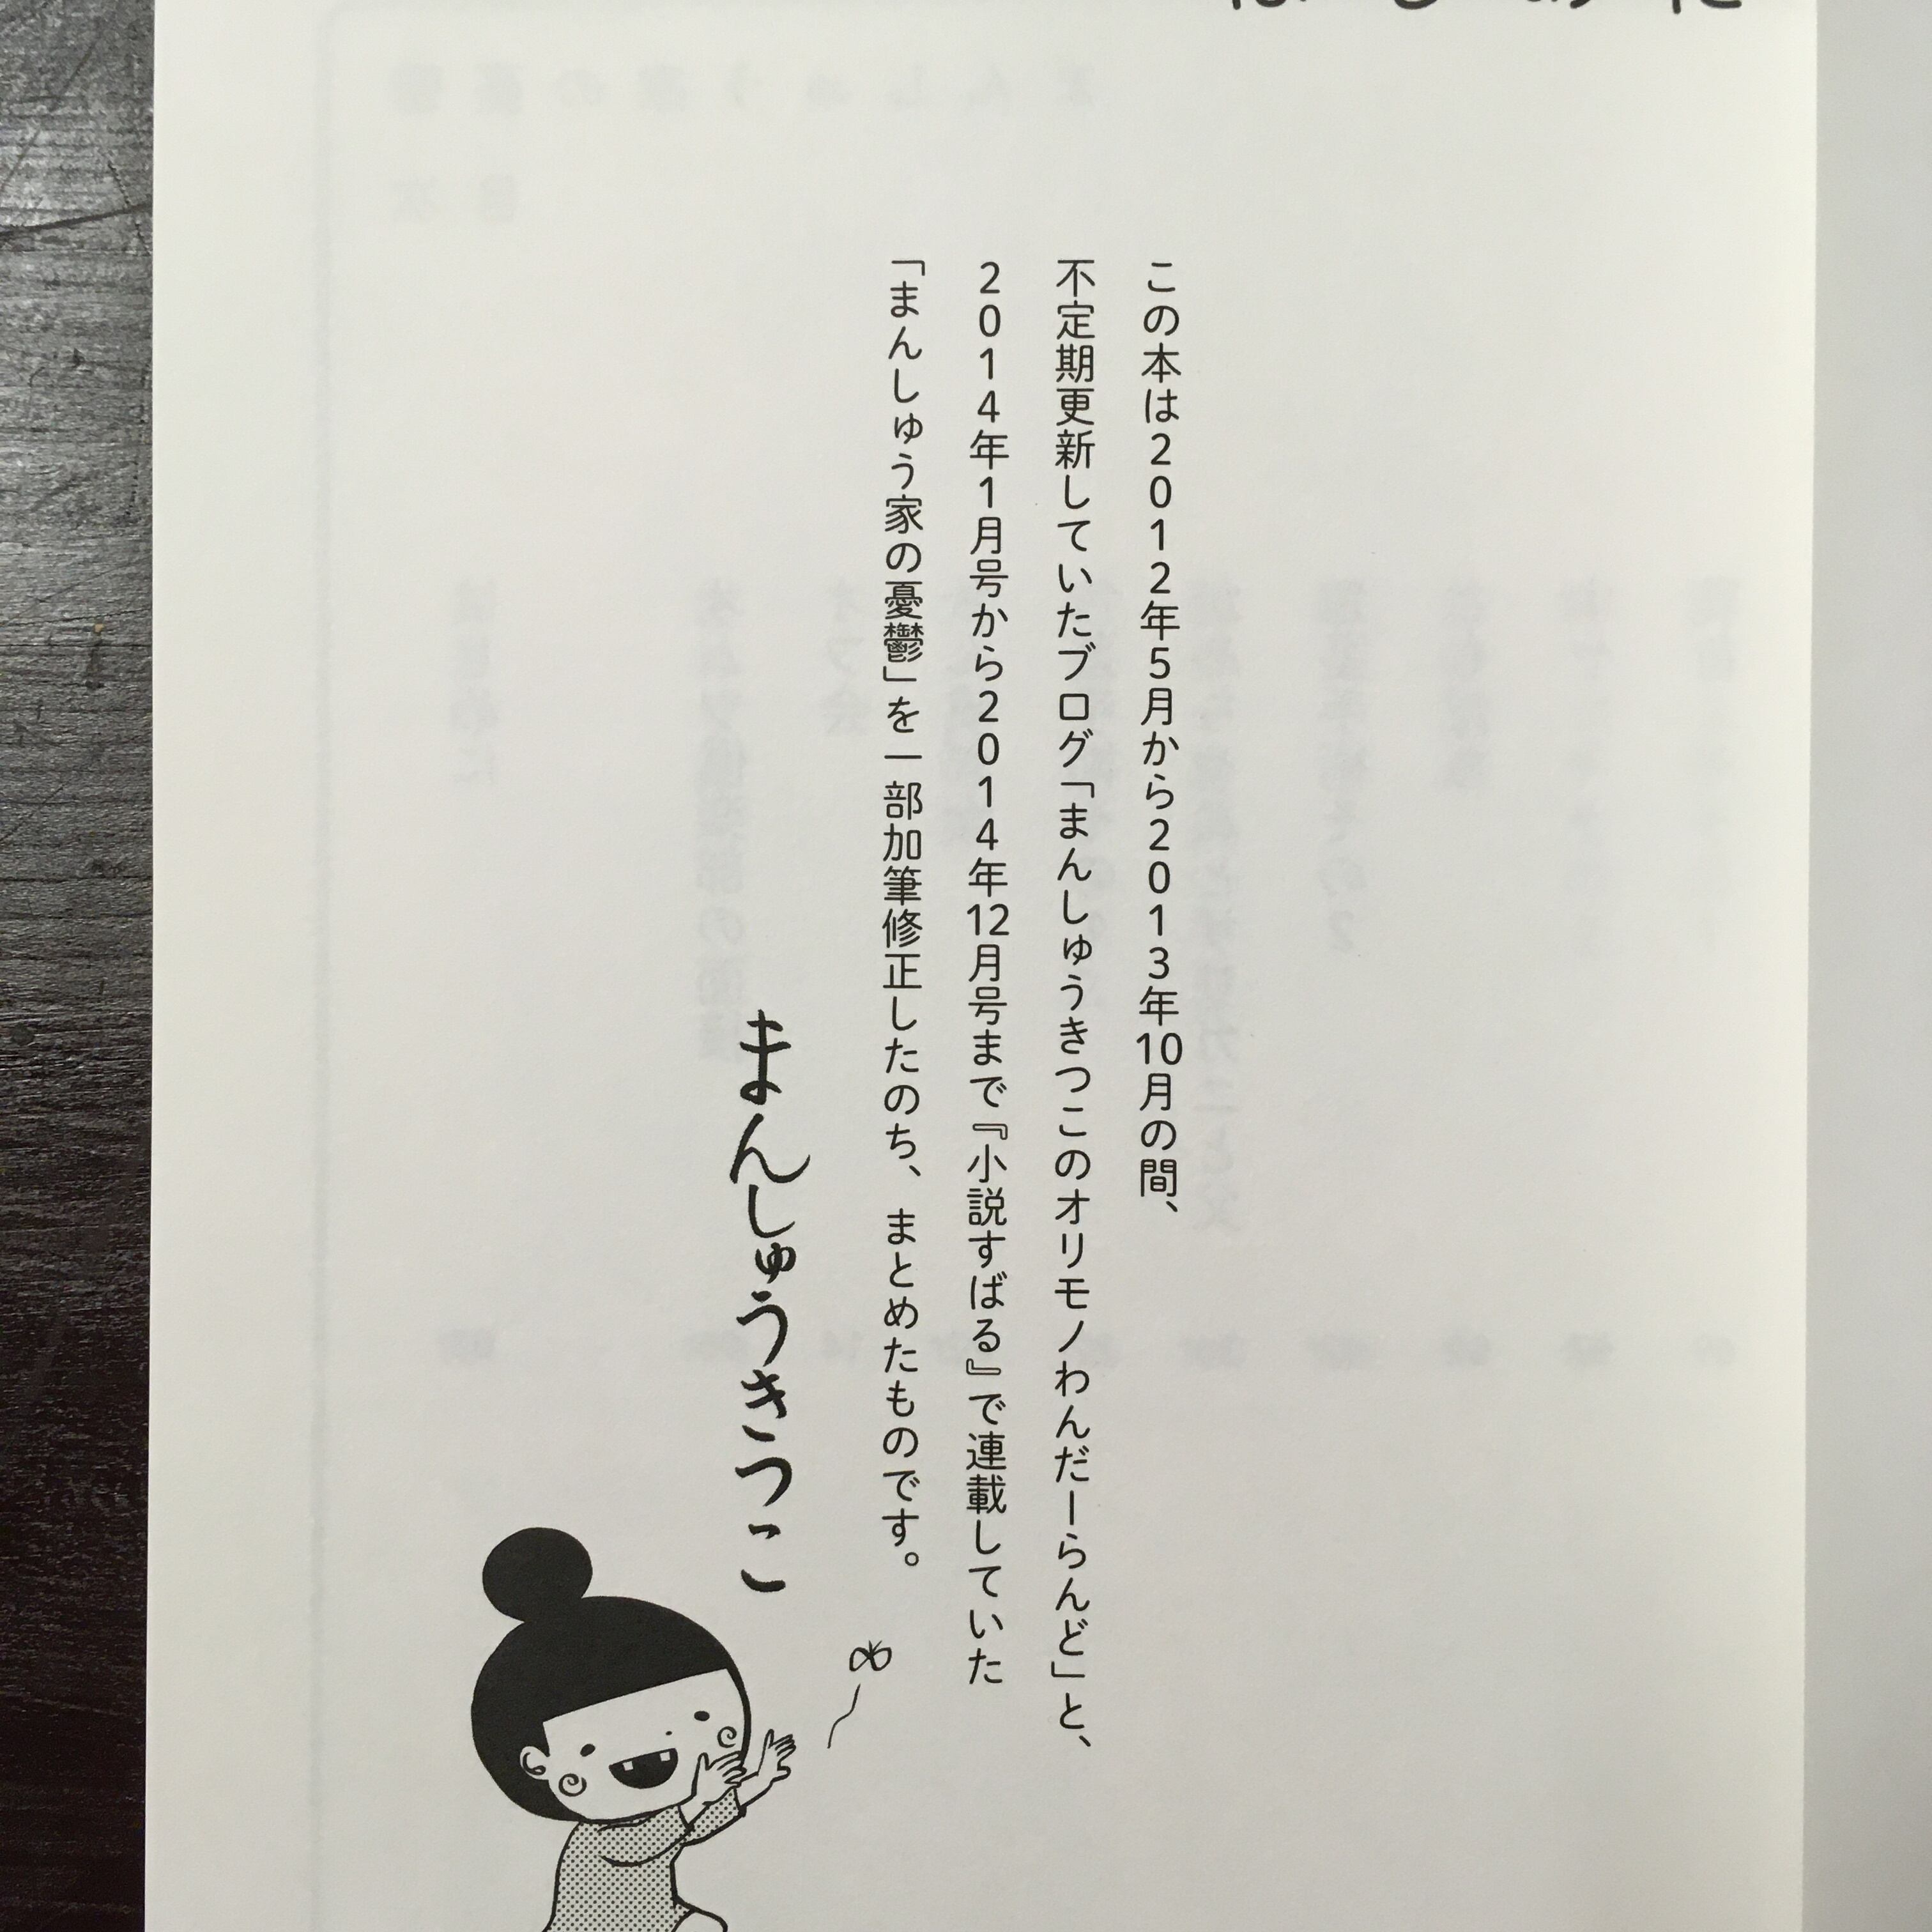 はじめに
この本は2012年5月から2013年10月の間、
不定期更新していたブログ「まんしゅうきつこのオリモノわんだーらんど」と、
2014年1月号から2014年12月号まで『小説すばる』で連載していた
「まんしゅう家の憂鬱」を一部加筆修正したのち、まとめたものです。
まんしゅうきつこ